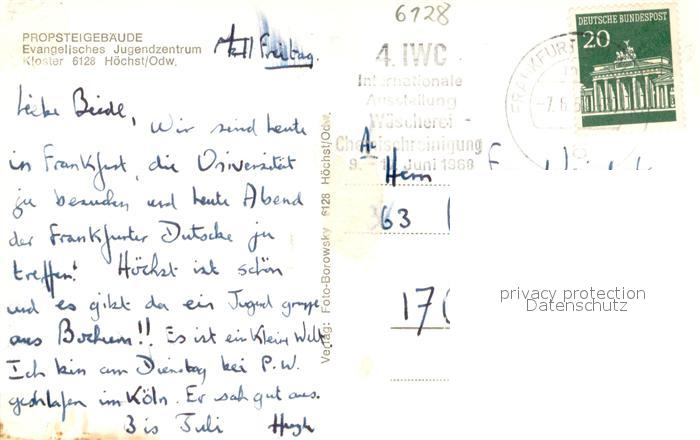 6128
PROPSTEIGEBÄUDE
Evangelisches Jugendzentrum
Kloster 6128 Höchst/Odw.
Freitag.
Liebe Beide,
Wir sind heute
in Frankfurt, die Universität
zu besuchen und heute Abend
der Frankfurter Dutscke zu
treffen! Höchst ist schön
und es gibt da ein Jugend gruppe
aus Bochum!! Es ist ein Kleine Welt
Ich bin am Dienstag bei P.W.
geschlafen im Köln. Er sah gut aus.
Bis Juli Hugh
Verlag: Foto-Borowsky 6128 Höchst/Odw.
4. IWC
Internationale
Ausstellung
Wäscherei -
Chemischreinigung
9. - Juni 1968
FRANKFURT
-7.6.
DEUTSCHE BUNDESPOST
20
An
Herrn
63
17
privacy protection
Datenschutz